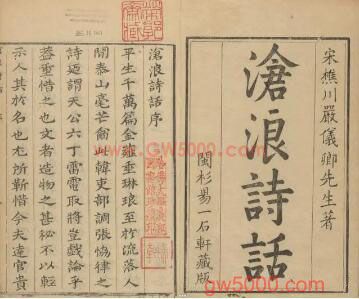 宋樵川嚴儀卿先生著
滄浪詩話
閩杉易一石軒藏版
滄浪詩話序
平生千萬篇金薤垂琳琅至於流落人
間泰山毫芒爾此韓吏部調張協律之
詩廼謂天公六丁雷電取將豈戲論乎
葢重惜之也文者造物之甚祕不以輕
示人其於名也尤所靳惜今夫達官貴
www.gw5000.com
gw5000.com